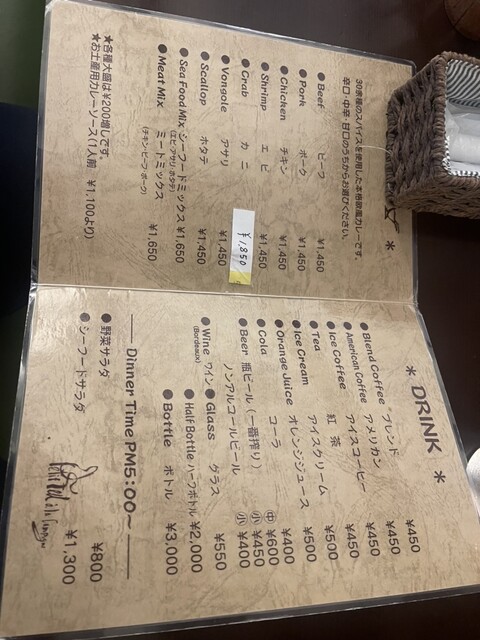 30余種のスパイスを使用した本格欧風カレーです。
辛口・中辛・甘口のうちからお選びください。
●Beef ビーフ ¥1,450
●Pork ポーク ¥1,450
●Chicken チキン ¥1,450
●Shrimp エビ ¥1,450
●Crab カニ ¥1,850
●Vongole アサリ ¥1,450
●Scallop ホタテ ¥1,450
●Sea Food Mix シーフードミックス ¥1,650
(エビ・アサリ・ホタテ)
●Meat Mix ミートミックス ¥1,650
(チキン・ビーフ・ポーク)
★各種大盛は¥200増しです。
★お土産用カレーソース(1人前 ¥1,100より)
* DRINK *
●Blend Coffee ブレンド ¥450
●American Coffee アメリカン ¥450
●Ice Coffee アイスコーヒー ¥450
●Tea 紅茶 ¥450
●Ice Cream アイスクリーム ¥500
●Orange Juice オレンジジュース ¥500
●Cola コーラ ¥400
●Beer 瓶ビール(一番搾り) ㊥¥600
㊤小¥450
ノンアルコールビール 小¥400
●Wine ワイン ●Glass グラス ¥550
(Bordeaux) ●Half Bottle ハーフボトル ¥2,000
●Bottle ボトル ¥3,000
Dinner Time PM5:00~
●野菜サラダ ¥800
●シーフードサラダ ¥1,300